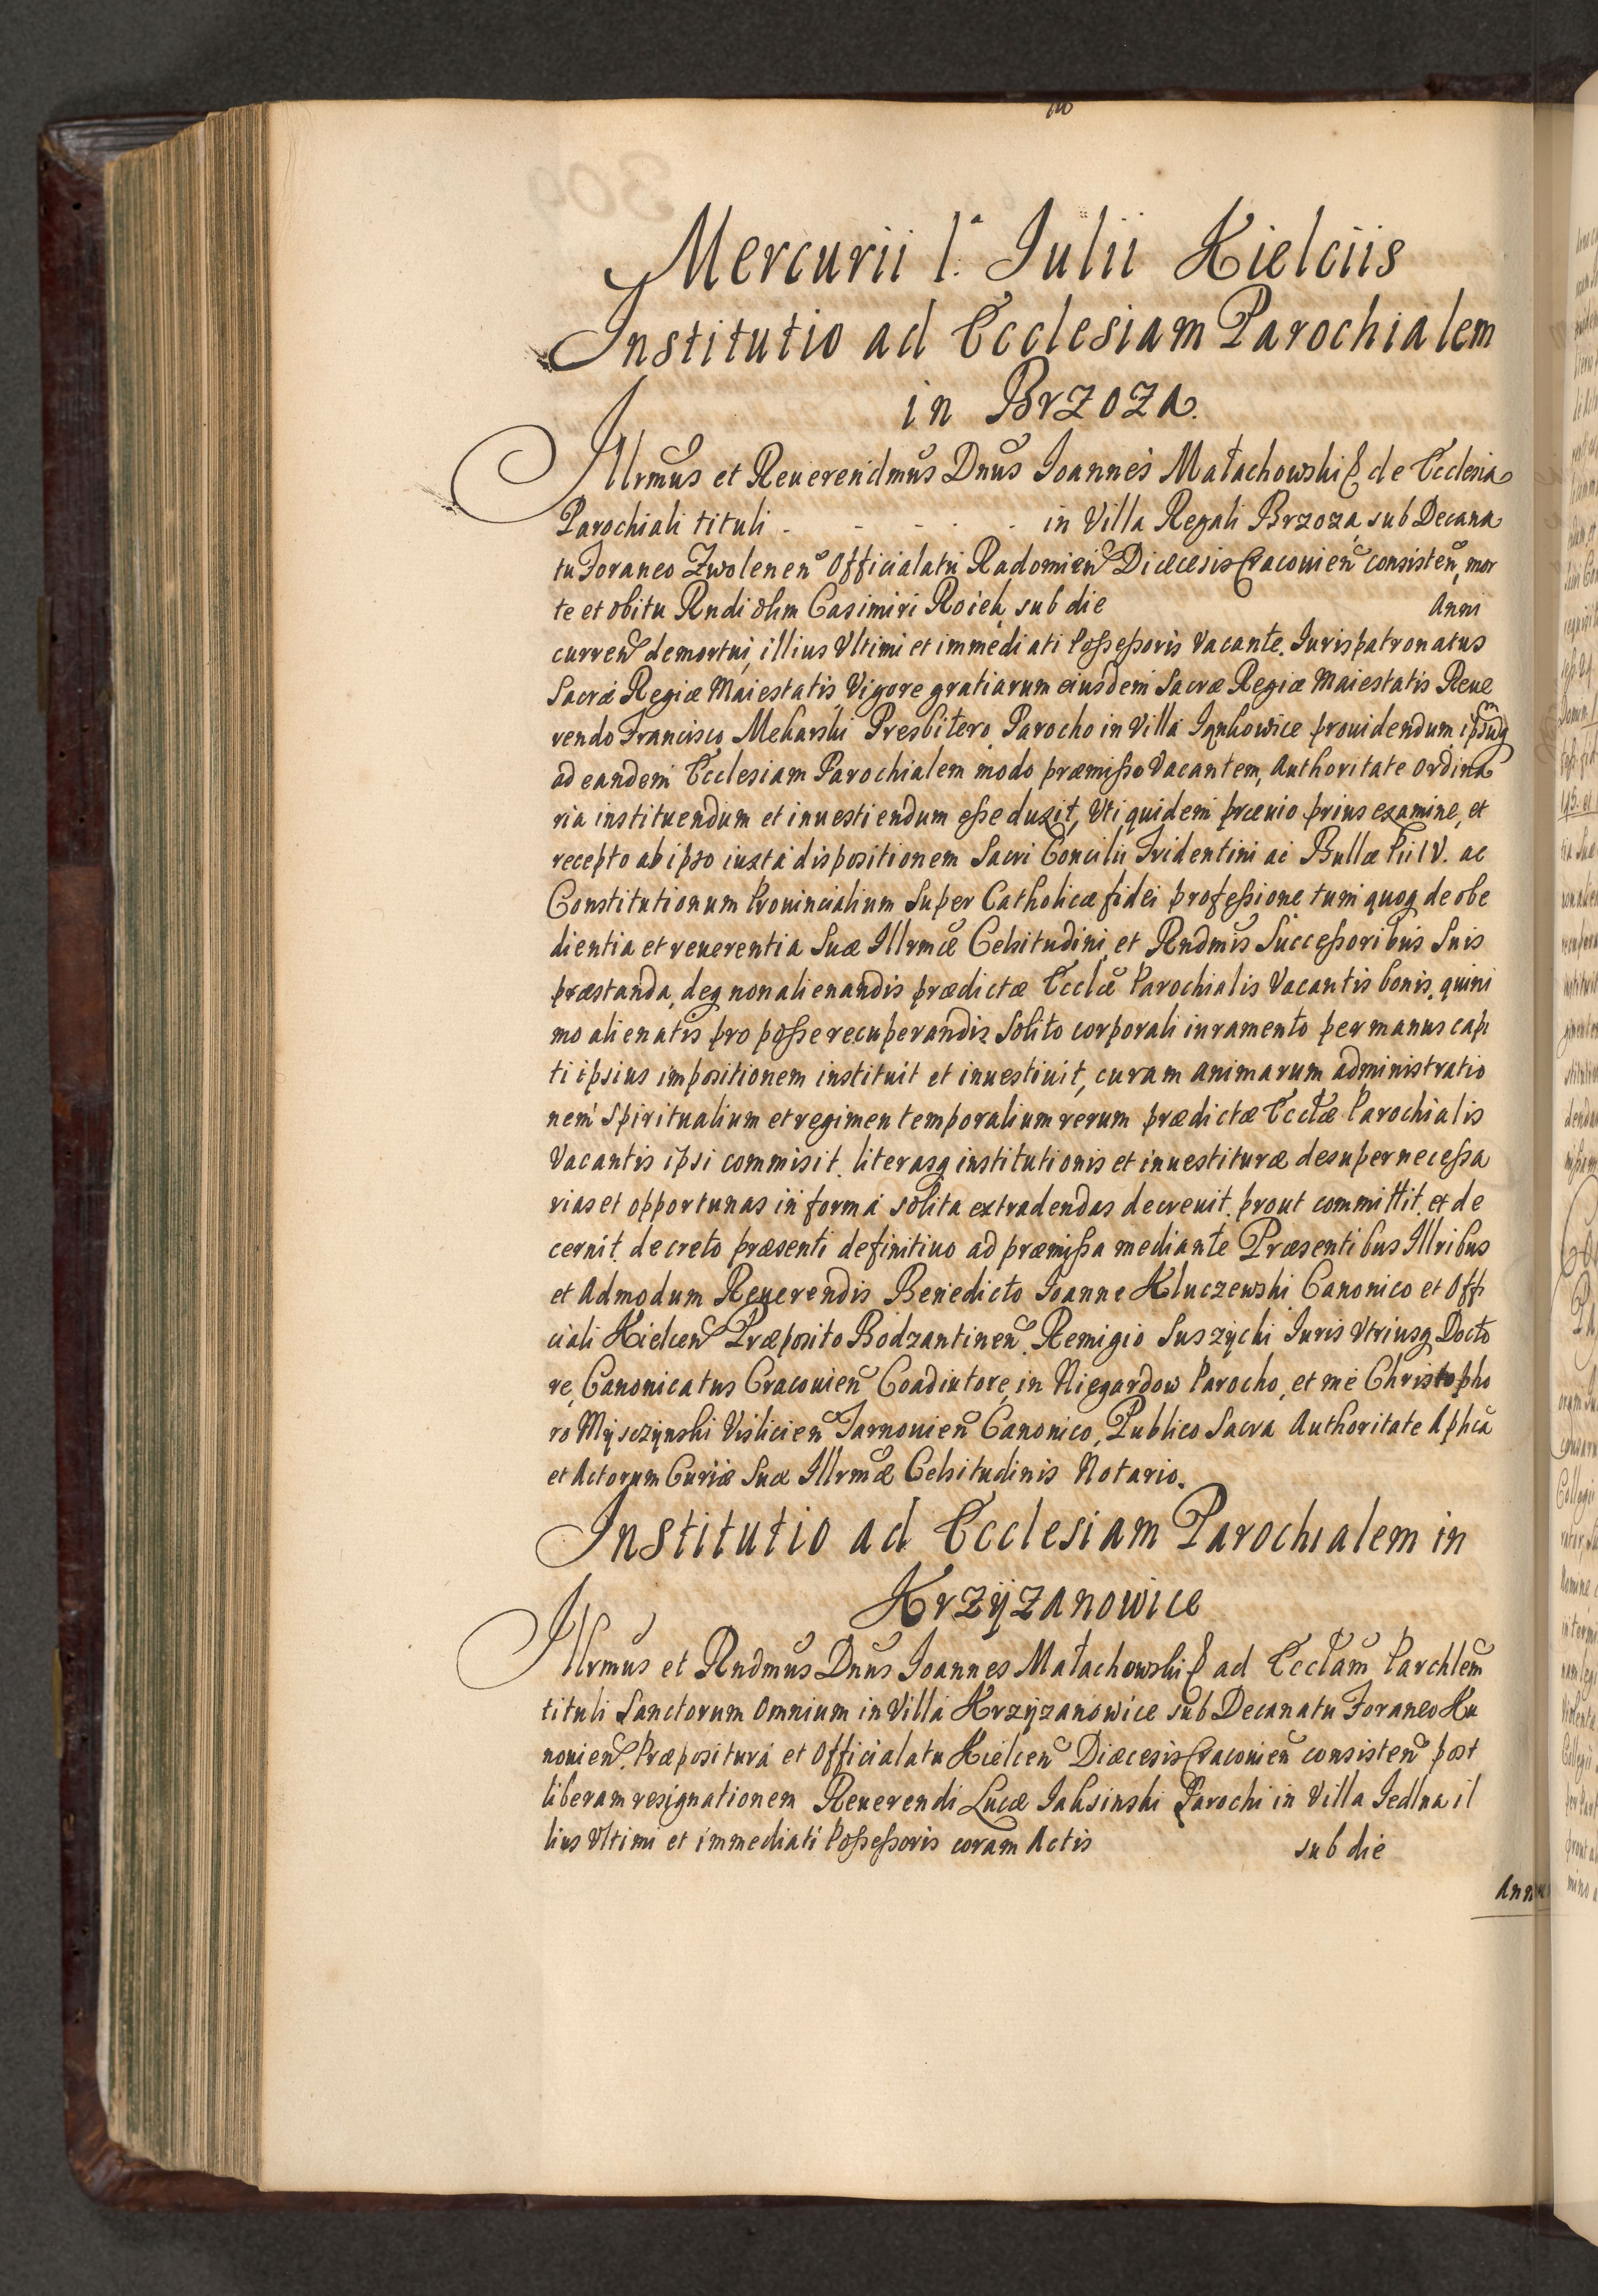 Mercurii 1.a Iulii Kielciis
Institutio ad Ecclesiam Parochialem
in Brzoza.
Illrmus et Reuerendmus Dnus Ioannes Małachowski de Ecclesia
Parochiali tituli - - - - - in Villa Regali Brzoza, sub Decana
tu Foraneo Zwolenen Officialatu Radomien Diæcesis Cracouien consisten, mor
te et obitu Rndi olim Casimiri Roiek, sub die Anni
curren demortui, illius Vltimi et immediati Possessoris Vacante. Iurispatronatus
Sacræ Regiæ Maiestatis, Vigore gratiarum eiusdem Sacræ Regiæ Maiestatis Reue
rendo Francisco Mekarski Presbitero Parocho in Villa Iankowice prouidendum, ipsumq
ad eandem Ecclesiam Parochialem modo præmisso Vacantem, Authoritate Ordina
ria instituendum et inuestiendum esse duxit, Vti quidem præuio prius examine, et
recepto ab ipso iuxta dispositionem Sacri Concilii Tridentini ac Bullæ Pii IV. ac
Constitutionum Prouincialium Super Catholicæ fidei professione tum quoq de obe
dientia et reuerentia Suæ Illrmæ Celsitudini, et Rndmis Successoribus Suis
præstanda, deq non alienandis prædictæ Ecclæ Parochialis Vacantis bonis, quini
mo alienatis pro posse recuperandis Solito corporali iuramento per manus capi
ti ipsius impositionem instituit et inuestiuit, curam animarum administratio
nem Spiritualium et regimen temporalium rerum prædictæ Ecclæ Parochialis
Vacantis ipsi commisit. literasq institutionis et inuestituræ desuper necessa
rias et opportunas in forma solita extradendas decreuit. prout committit. et de
cernit. decreto præsenti definitiuo ad præmissa mediante Præsentibus Illribus
et Admodum Reuerendis Benedicto Ioanne Kluczewski Canonico et Offi
ciali Kielcen Præposito Bodzantinen. Remigio Suszycki Iuris Vtriusq Docto
re, Canonicatus Cracouien Coadiutore, in Niegardow Parocho, et me Christopho
ro Mysczynski Vislicien Tarnouien Canonico, Publico Sacra Authoritate Aplica
et Actorum Curiæ Suæ Illrmæ Celsitudinis Notario.
Institutio ad Ecclesiam Parochialem in
Krzyżanowice
Illrmus et Rndmus Dnus Ioannes Małachowski ad Ecclam Parchlem
tituli Sanctorum Omnium in Villa Krzyzanowice sub Decanatu Foraneo Ku
nouien. Præpositura et Officialatu Kielcen Diæcesis Cracouien consisten post
liberam resignationem Reuerendi Lucæ Iaksinski Parochi in Villa Iedlna il
lius Vltimi et immediati Possessoris coram Actis sub die